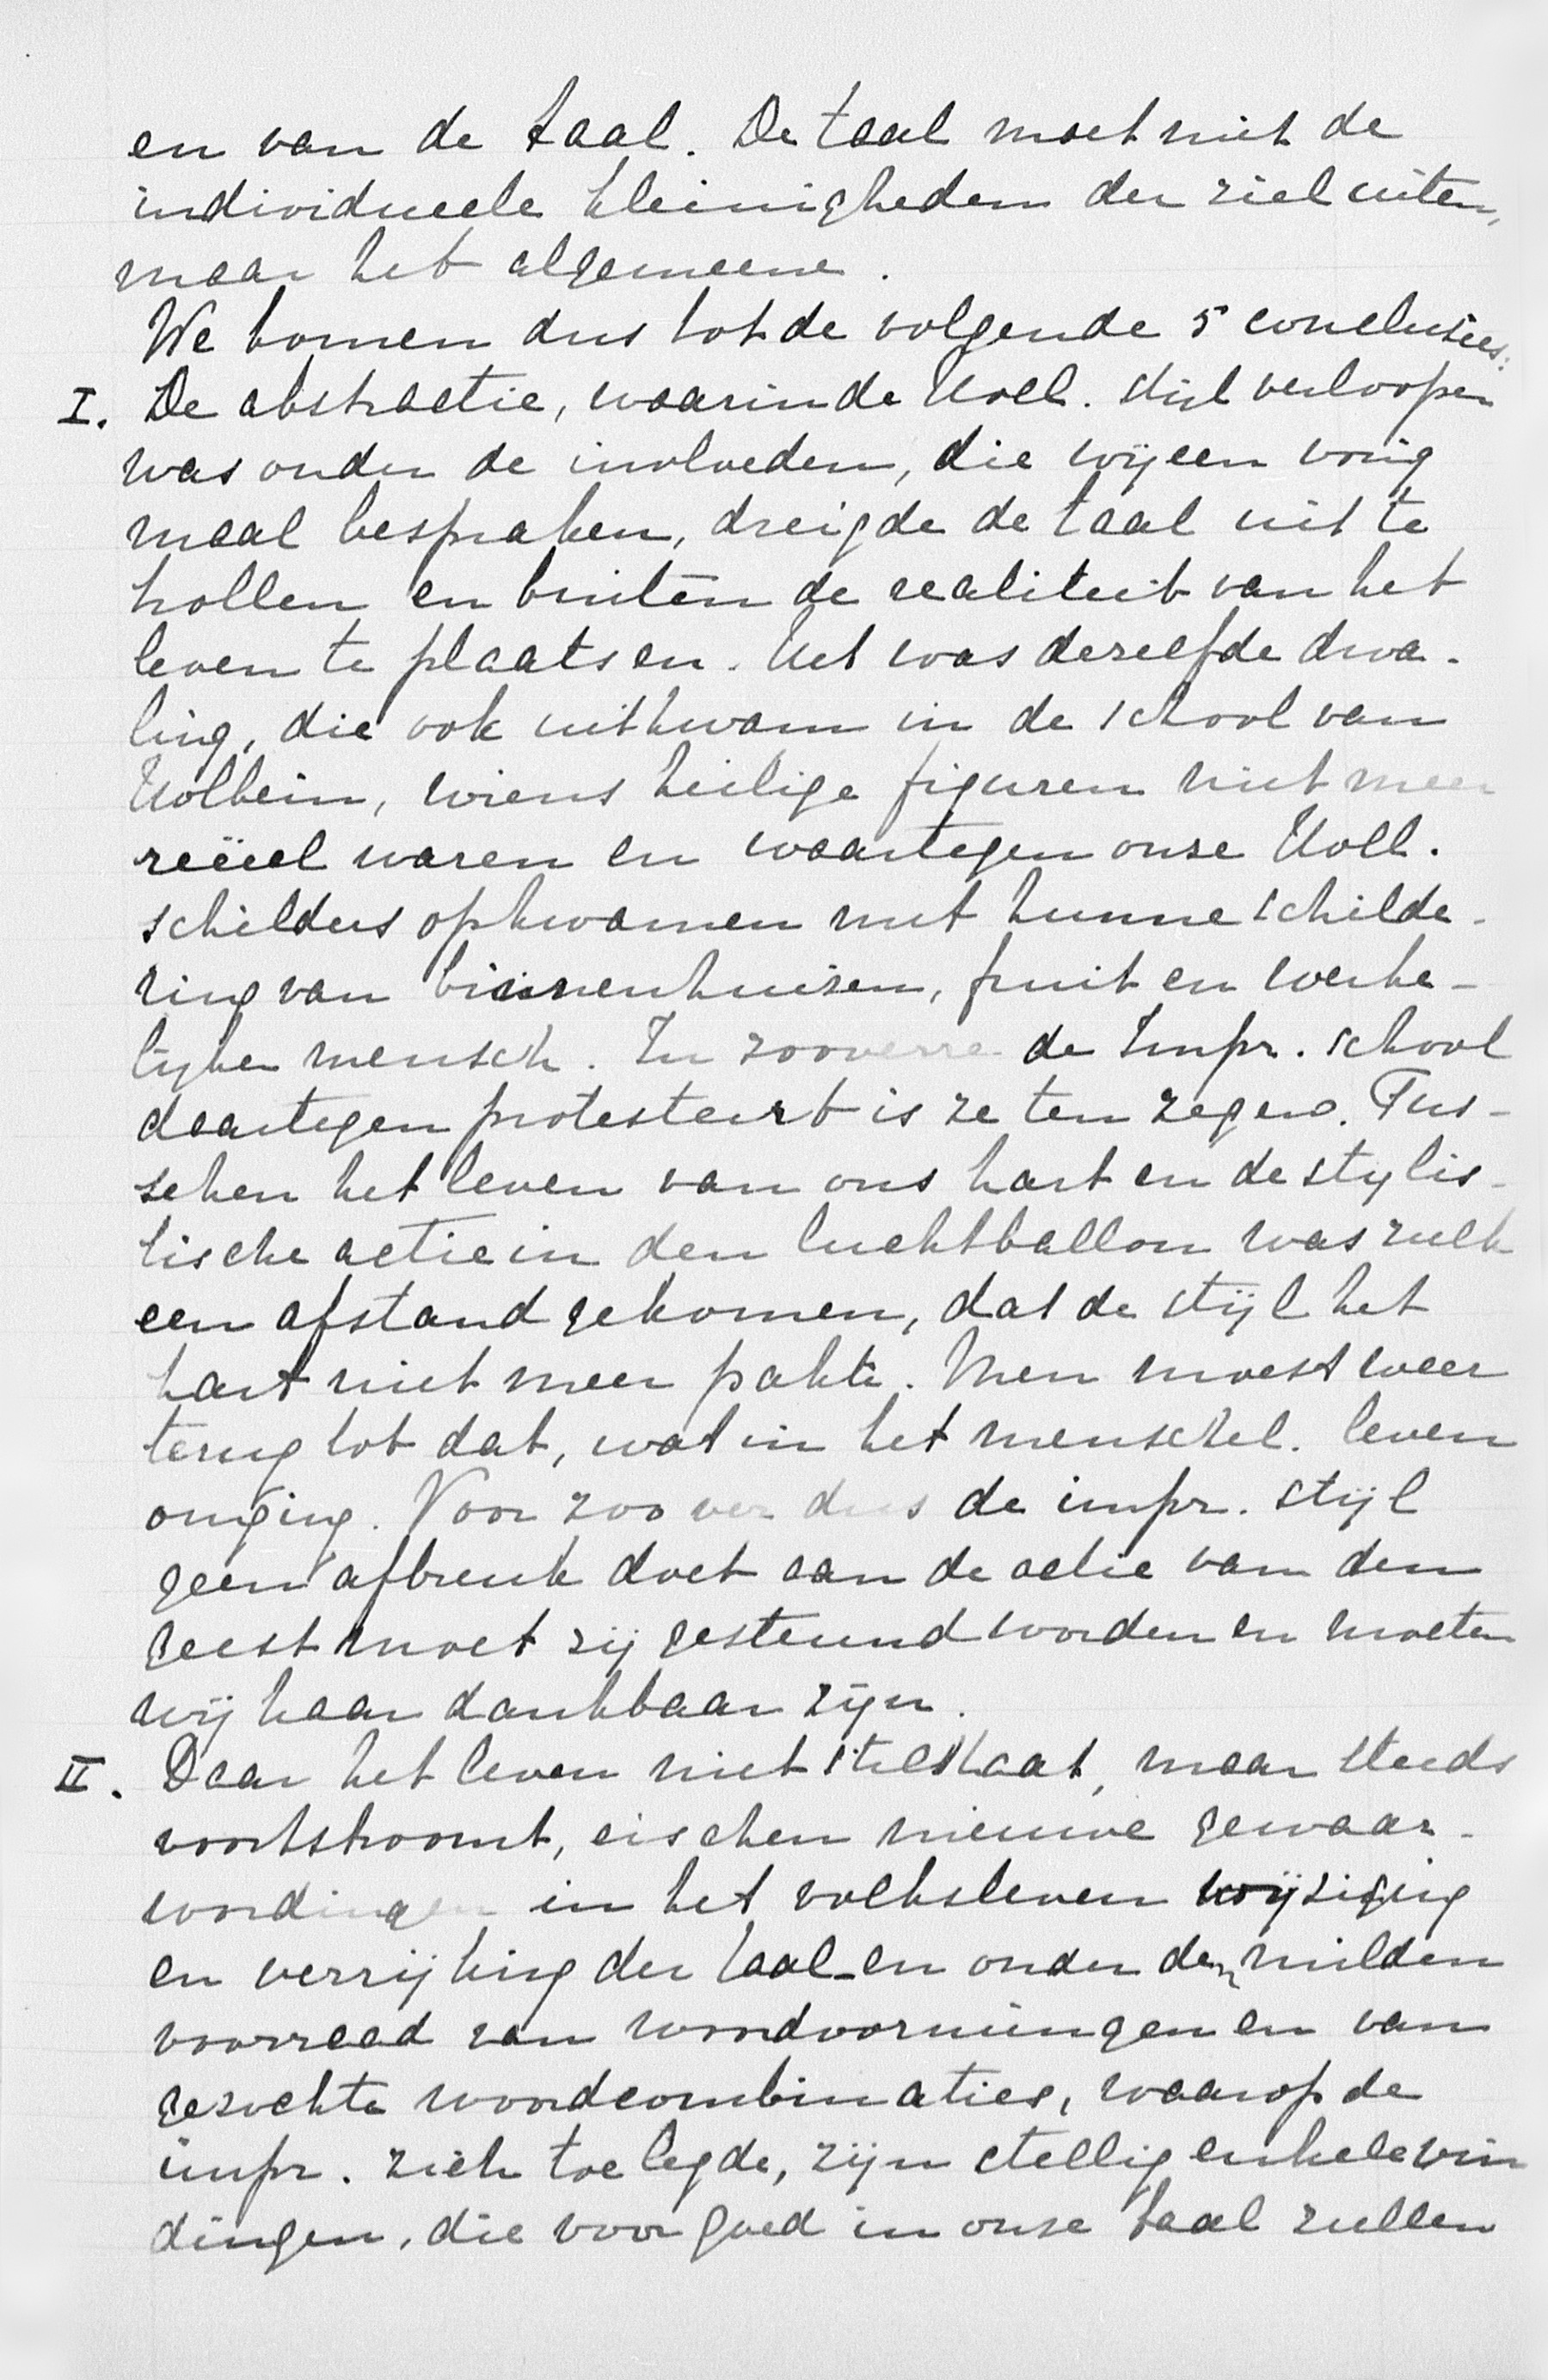 en van de taal. De taal moet niet de
individueele kleinigheden der ziel uiten,
maar het algemeene.
We komen dus tot de volgende 5 conclusies:
I. De abstractie, waarin de Holl. stijl verloopen
was onder de invloeden, die wij een vorig
maal bespraken, dreigde de taal uit te
hollen en buiten de realiteit van het
leven te plaatsen. Het was dezelfde dwa-
ling, die ook uitkwam in de school van
Holbein, wiens heilige figuren niet meer
reëel waren en waartegen onze Holl.
schilders opkwamen met hunne schilde-
ring van binnenhuizen, fruit en werke-
lijken mensch. In zooverre de Impr. school
daartegen protesteert is ze ten zegen. Tus-
schen het leven van ons hart en de stylis-
tische actie in den luchtballon was zulk
een afstand gekomen, dat de stijl het
hart niet meer pakte. Men moest weer
terug tot dat, wat in het menschel. leven
omging. Voor zoo ver dus de impr. stijl
geen afbreuk doet aan de actie van den
geest moet zij gesteund worden en moeten
wij haar dankbaar zijn.
II. Daar het leven niet stilstaat, maar steeds
voortstroomt, eischen nieuwe gewaar-
wordingen in het volksleven wijziging
en verrijking der taal en onder den milden
voorraad van woordvormingen en van
gezochte woordcombinaties, waarop de
impr. zich toelegde, zijn stellig enkele vin
dingen, die voor goed in onze taal zullen